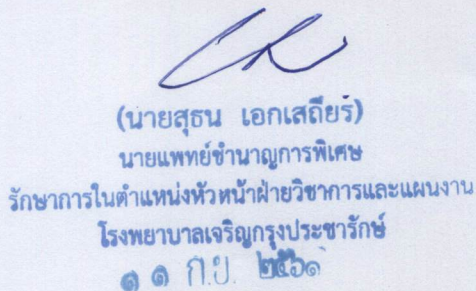 (นายสุธน เอกเสถียร)
นายแพทย์ชำนาญการพิเศษ
รักษาการในตำแหน่งหัวหน้าฝ่ายวิชาการและแผนงาน
โรงพยาบาลเจริญกรุงประชารักษ์
๑๑ ก.ย. ๒๕๖๑